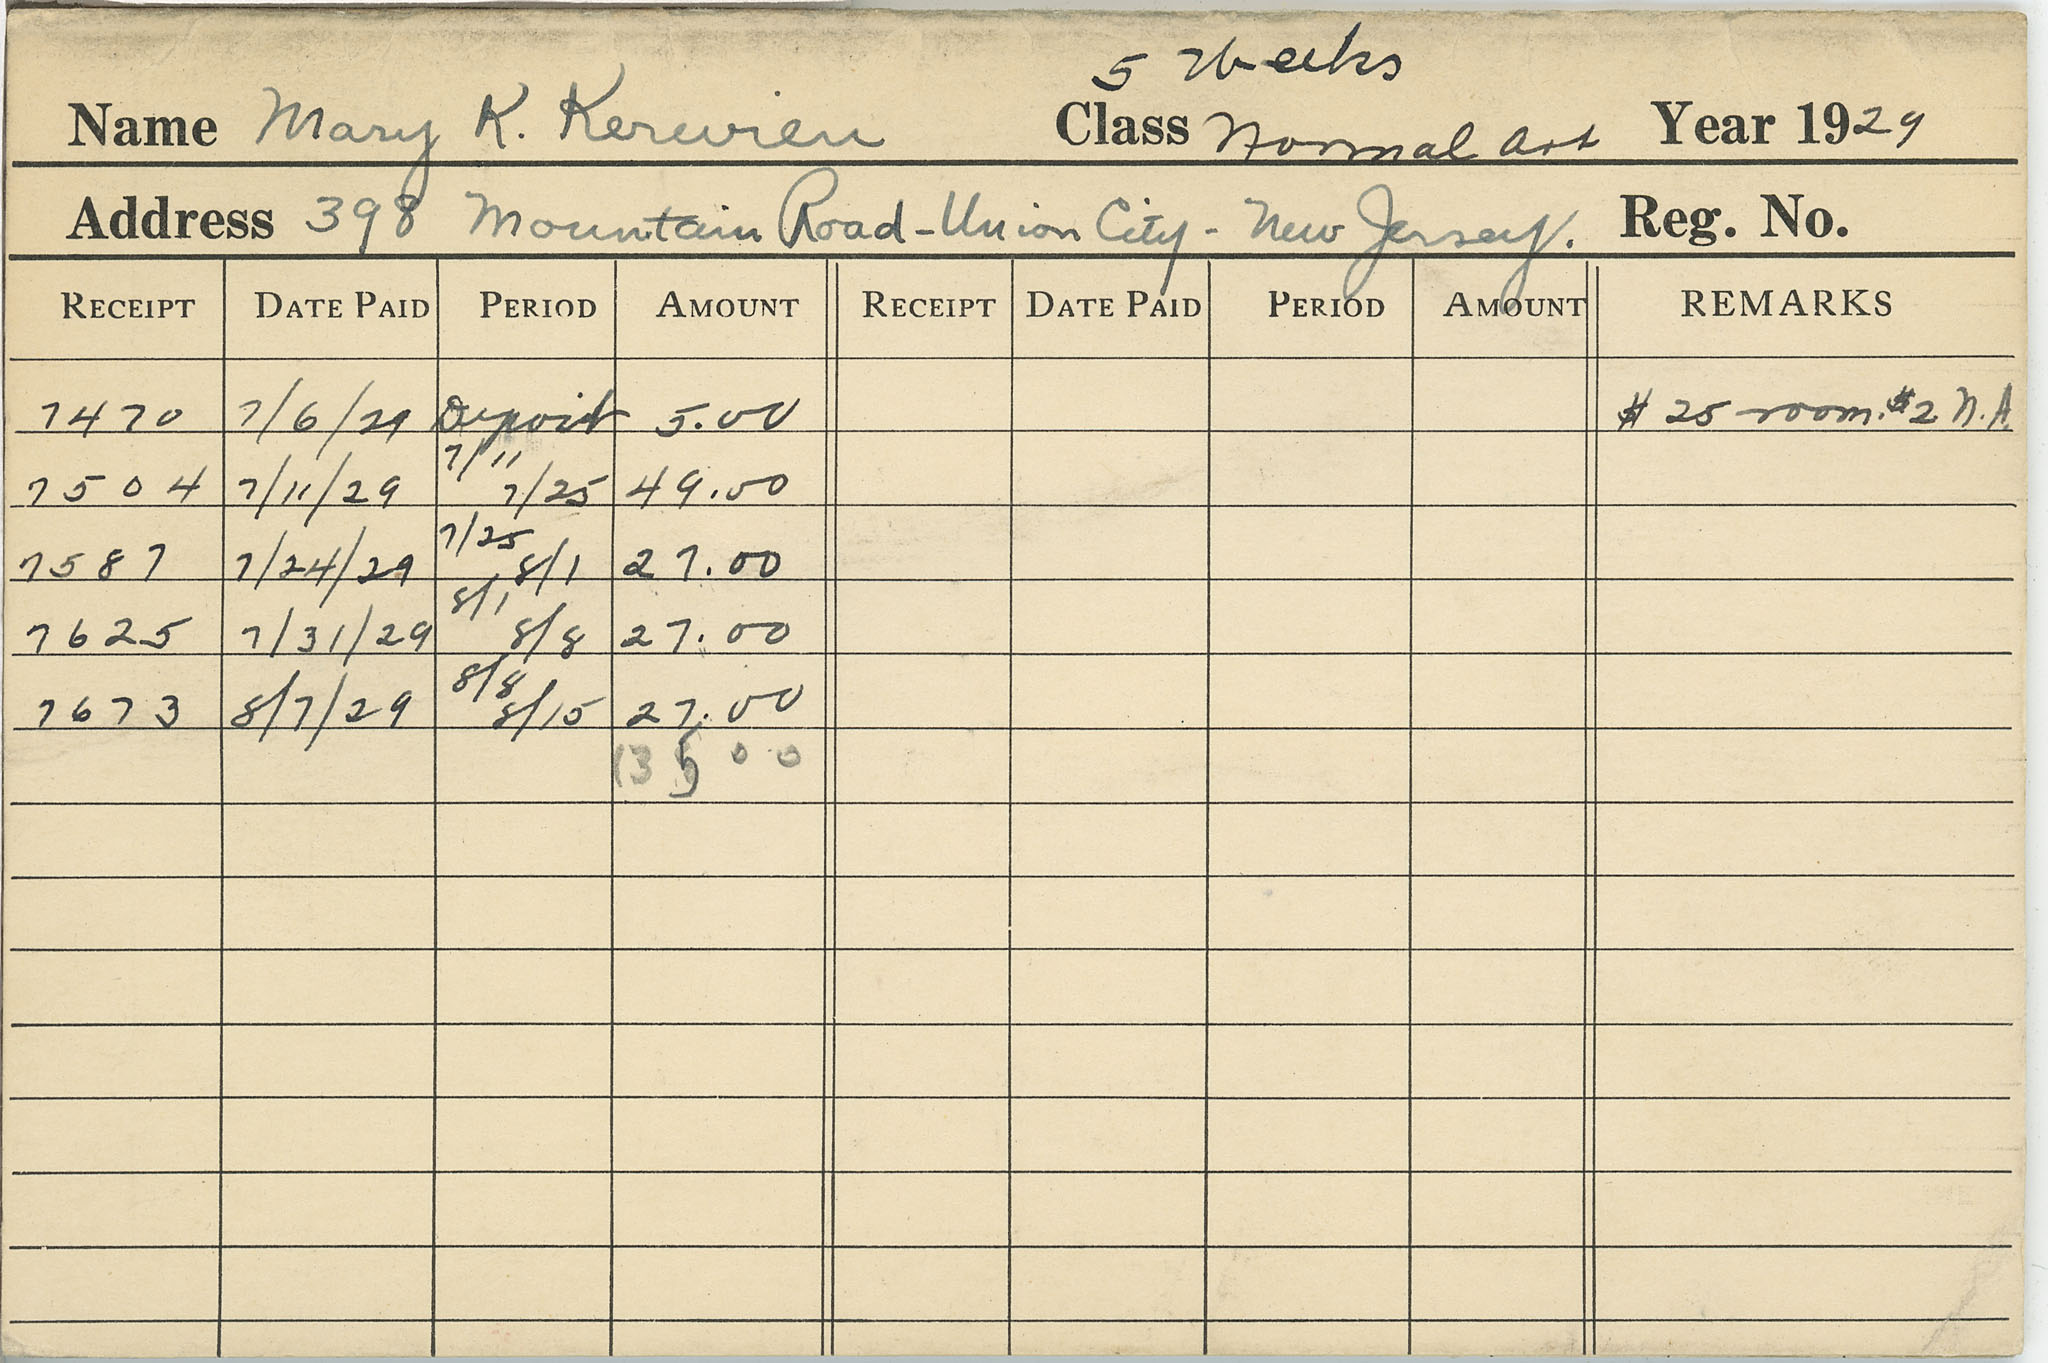 5 Weeks
Name Mary K. Kerwien Class Normal Art Year 1929
Address 398 Mountain Road - Union City - New Jersey. Reg. No.
RECEIPT DATE PAID PERIOD AMOUNT RECEIPT DATE PAID PERIOD AMOUNT REMARKS
7470 7/6/29 Deposit 5.00 $25 room. $2 N.A.
7/11
7504 7/11/29 7/25 49.00
7/25
7587 7/24/29 8/1 27.00
8/1
7625 7/31/29 8/8 27.00
8/8
7673 8/7/29 8/15 27.00
135 00